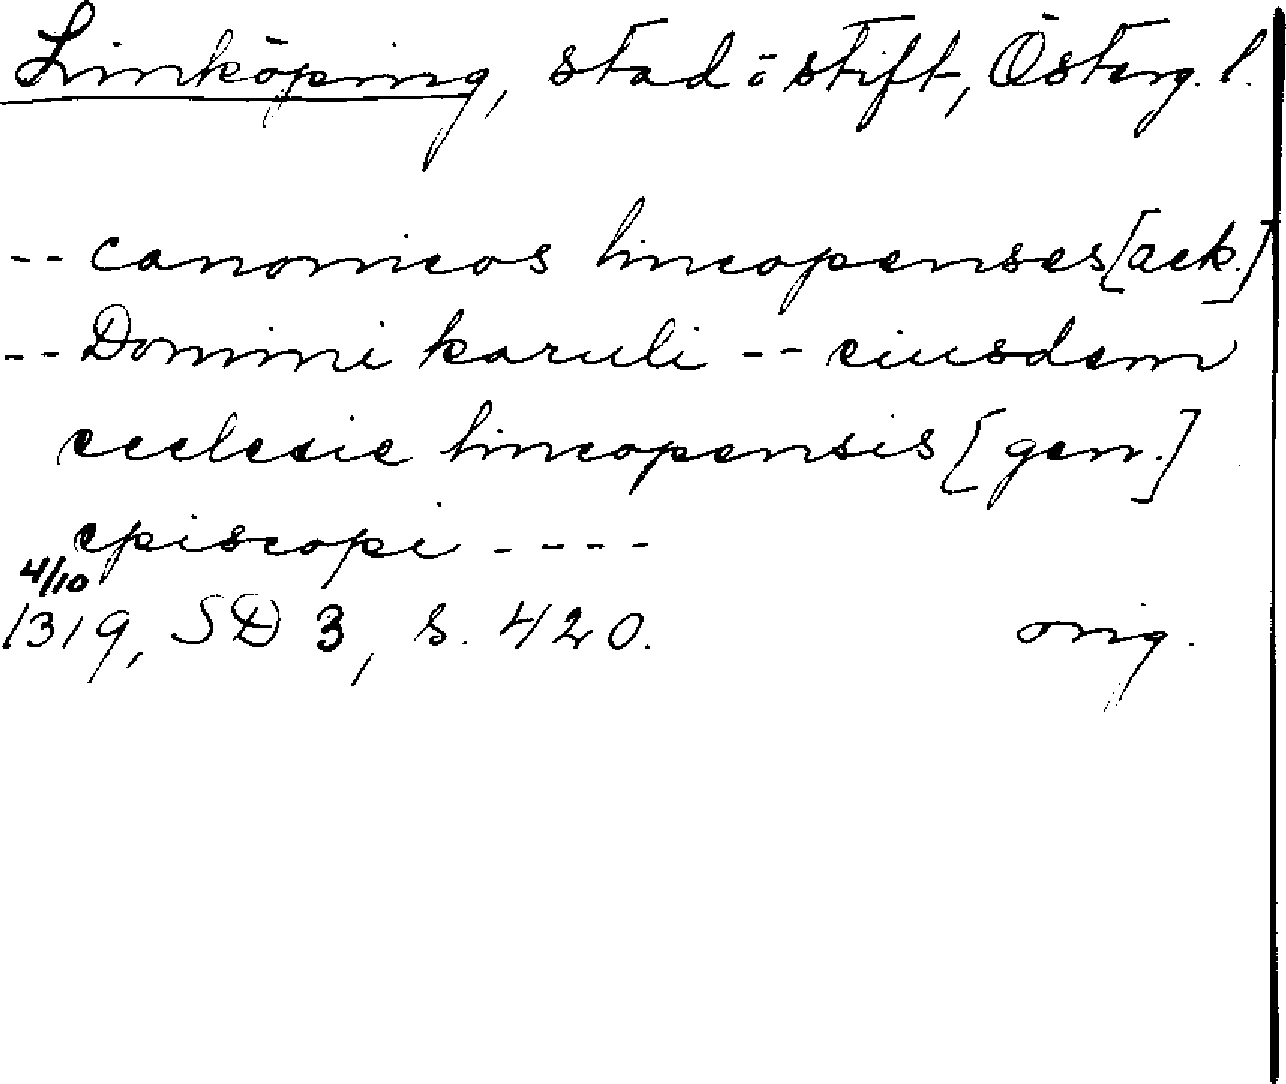 Linköping, stad o stift, Österg. l.
-- canonicos lincopenses [ack.]
-- Domini karuli -- eiusdem
ecclesie lincopensis [gen.]
episcopi ----
4/10
1319, SD 3, s. 420. orig.